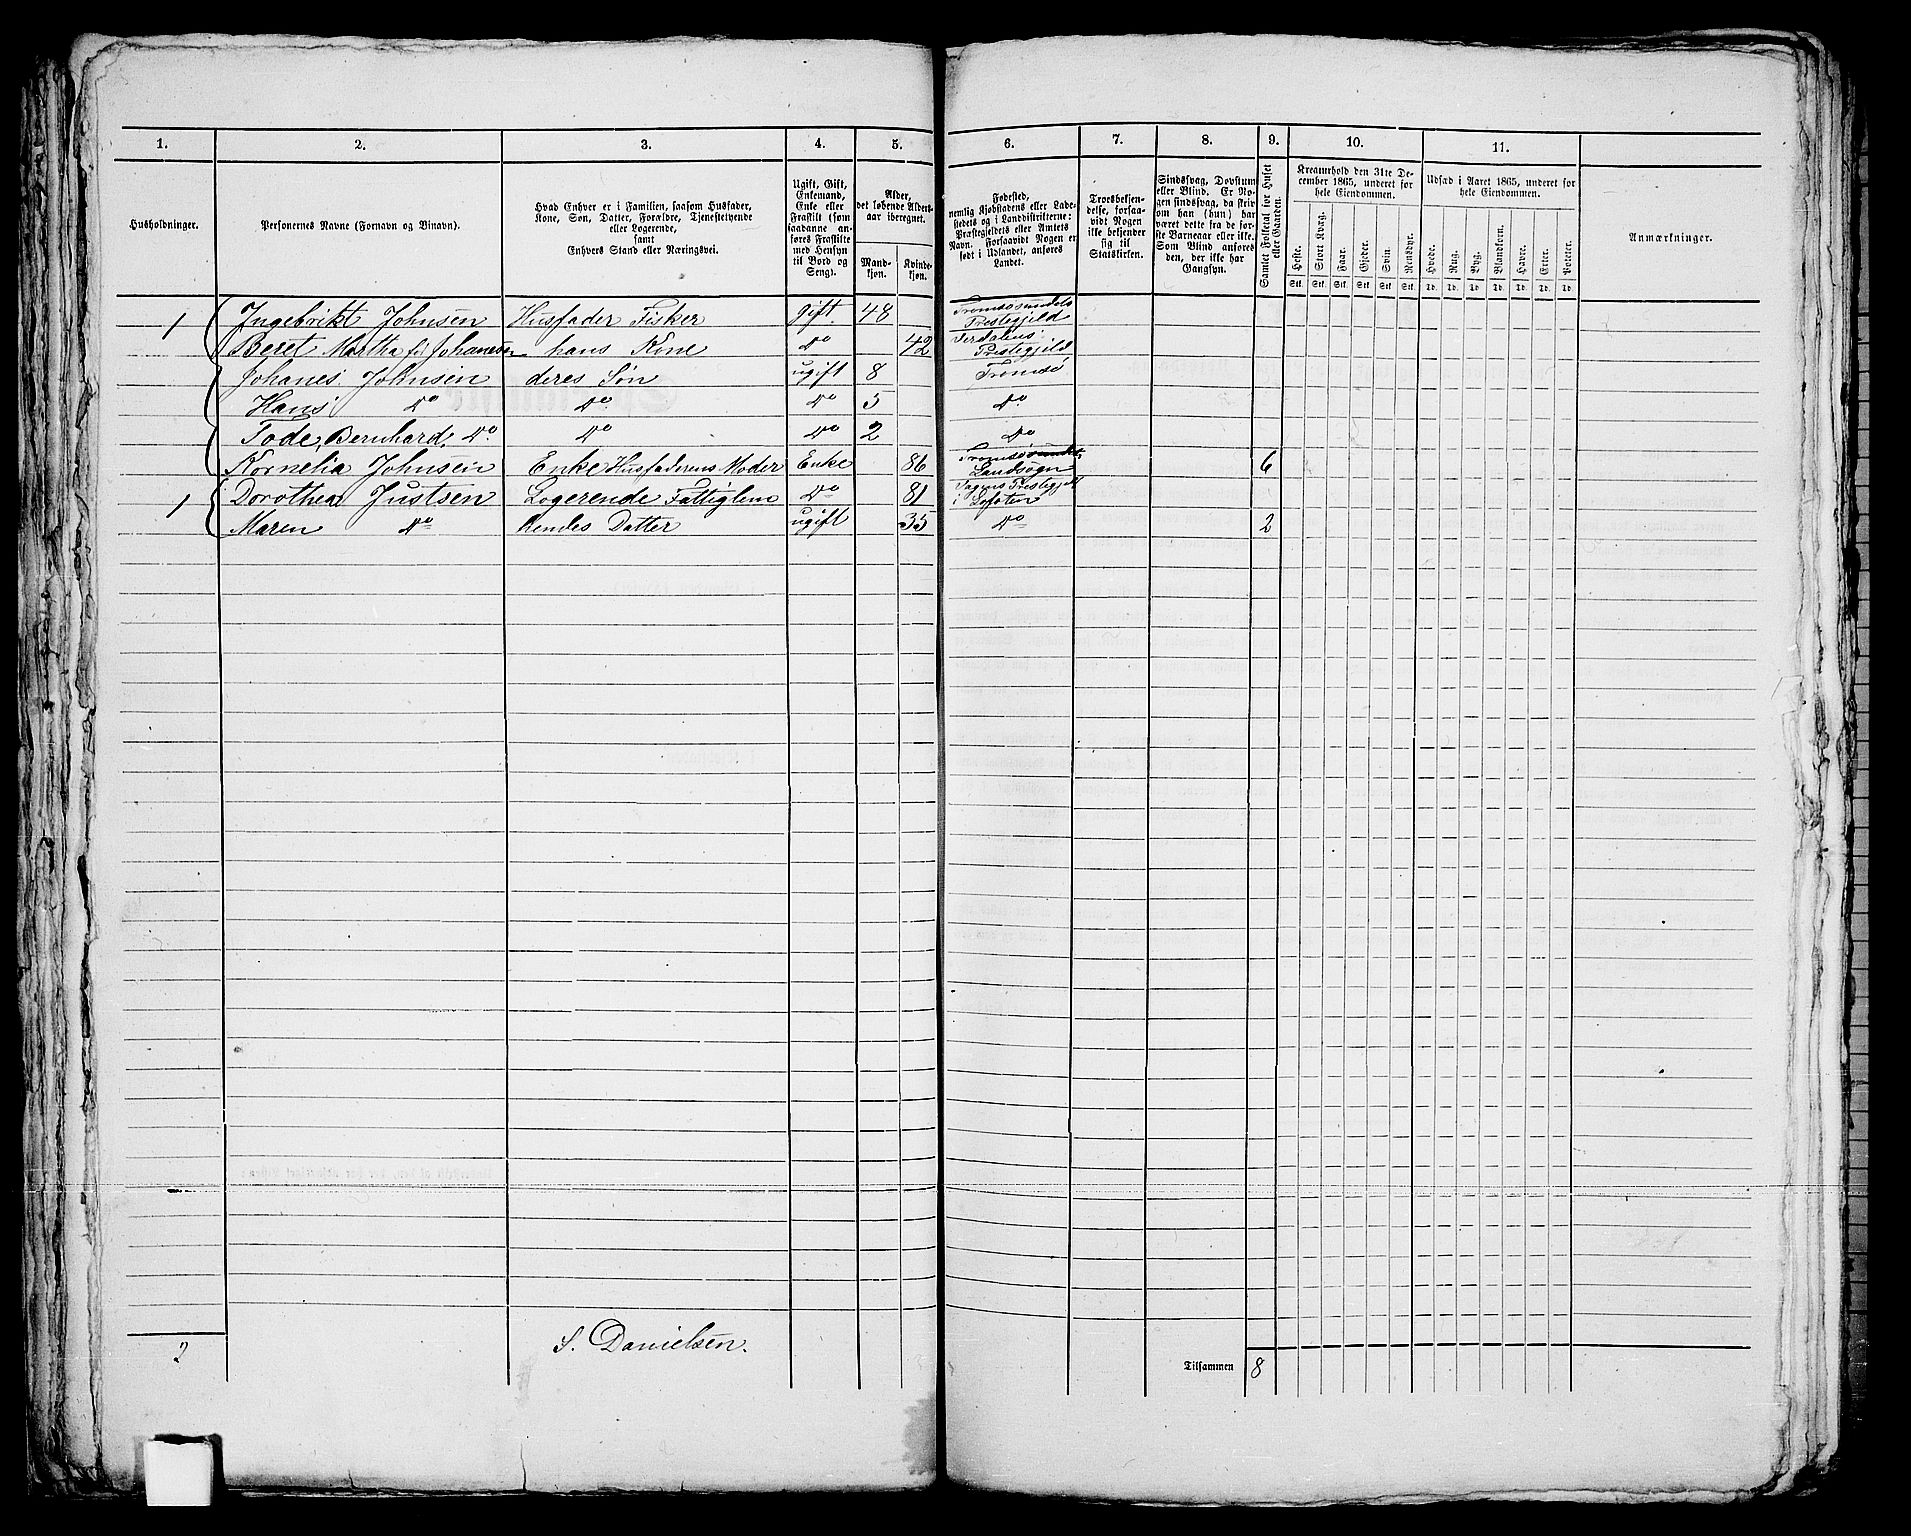 1. 2. 3. 4. 5. 6. 7. 8. 9. 10. 11.
Husholdninger.
Personernes Navne (Fornavn og Binavn).
Hvad Enhver er i Familien, saasom Husfader,
Kone, Søn, Datter, Forældre, Tjenestetyende
eller Logerende,
samt
Enhvers Stand eller Næringsvei.
Ugift, Gift,
Enkemand,
Enke eller
Fraskilt (som
saadanne an-
føres Fraskilte
med Hensyn
til Bord og
Seng).
Alder,
det løbende Alders-
aar iberegnet.
Mand-
kjøn.
Kvinde-
kjøn.
Fødested,
nemlig Kjøbstadens eller Lade-
stedets og i Landdistrikterne:
Præstegjeldets eller Amtets
Navn. Forsaavidt Nogen er
født i Udlandet, anføres
Landet.
Troesbekjen-
delse, forsaa-
vidt Nogen
ikke bekjender
sig til
Statskirken.
Sindssvag, Døvstum
eller Blind. Er No-
gen sindssvag, da skriv
om han (hun) har
været dette fra de før-
ste Barneaar eller ikke.
Som Blind anføres
den, der ikke har
Gangsyn.
Samlet Folketal for Huset
eller Gaarden.
Kreaturhold den 31te De-
cember 1865, underet for
hele Eiendommen.
Heste. Stort Kvæg. Faar. Gjeder. Svin. Rensdyr.
Stk. Stk. Stk. Stk. Stk. Stk.
Udsæd i Aaret 1865, underet for
hele Eiendommen.
Hvede. Rug. Byg. Blandkorn. Havre. Erter. Poteter.
Td. Td. Td. Td. Td. Td. Td.
Anmærkninger.
1 Ingebrikt Johnsen Husfader Fisker gift 48 Tromsøsundets Prestegjeld
Beret Martha Johanesen hans Kone do 42 Verdalens Prestegjeld
Johanes Johnsen deres Søn ugift 8 Tromsø
Hans do do do 5 do
Tode Bernhard do do do 2 do
Kornelia Johnsen Enke Husfaderens Moder Enke 86 Tromsøsundets Landsogn 6
1 Dorothea Justsen Logerende Fattiglem do 81 Prestegjeld i Lofoten
Maren do hendes Datter ugift 35 do 2
2
S. Danielsen.
Tilsammen 8